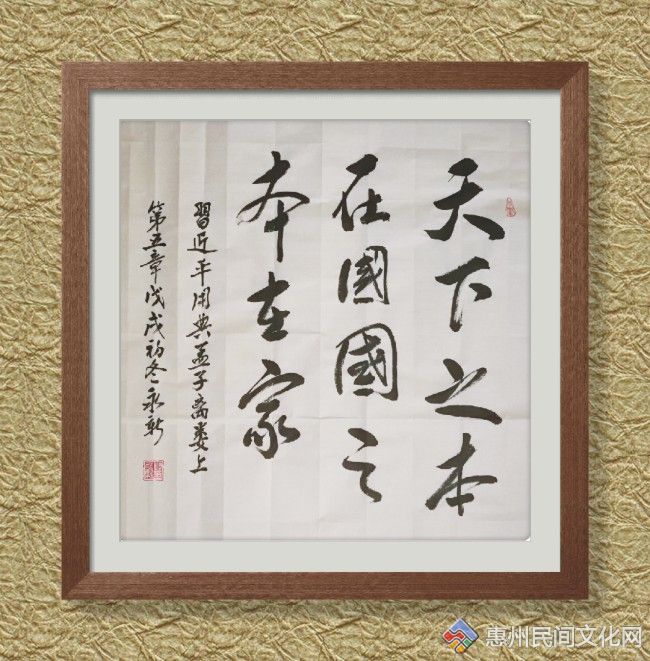 天下之本
在國國之
本在家
習近平用典孟子离娄上
第五章戊戌初冬永新
惠州民间文化网